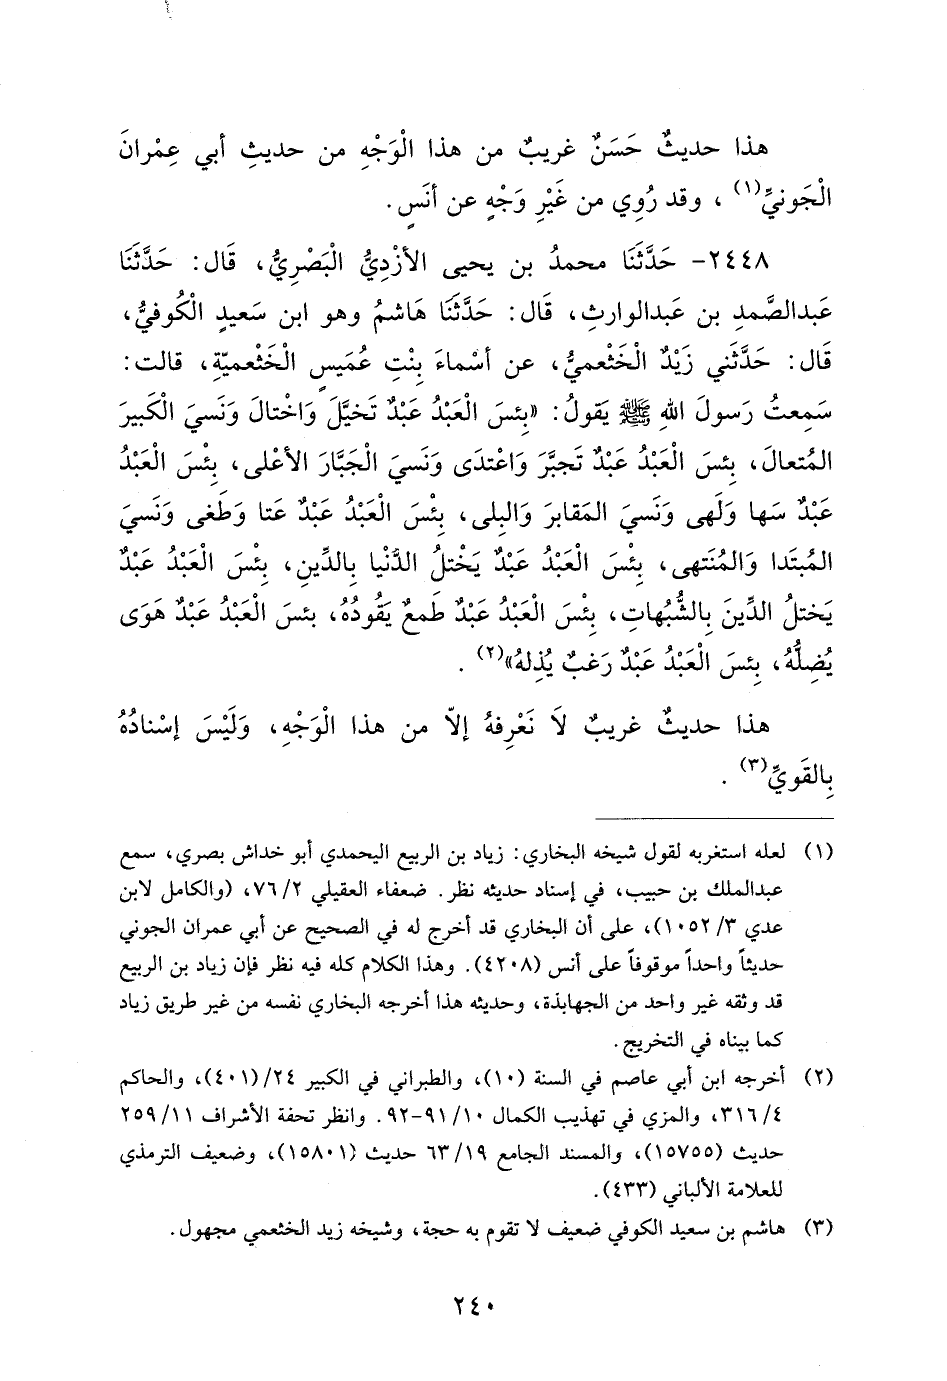 هذا حديثٌ حَسَنٌ غريبٌ من هذا الْوَجْهِ من حديثِ أبي عِمْرانَ
الْجَونيِّ(١) ، وقد رُوِي من غَيْرِ وَجْهٍ عن أنَسٍ.
٢٤٤٨- حَدَّثَنَا محمدُ بن يحيى الأزْدِيُّ الْبَصْرِيُّ، قَال: حَدَّثَنَا
عَبدالصَّمدِ بن عَبدالوارثِ، قَال: حَدَّثَنَا هَاشمُ وهو ابن سَعيدٍ الْكُوفيُّ،
قَال: حَدَّثَني زَيْدٌ الْخَثْعميُّ، عن أسْماءَ بِنْتِ عُمَيسٍ الْخَثْعميّةِ، قالت:
سَمِعتُ رَسولَ اللهِ ﷺ يَقولُ: «بِئسَ الْعَبْدُ عَبْدٌ تَخيَّلَ وَاخْتالَ وَنَسيَ الْكَبيرَ
المُتعالَ، بِئسَ الْعَبْدُ عَبْدٌ تَجبَّرَ وَاعْتدَى وَنَسيَ الْجَبَّارَ الأعْلى، بِئْسَ الْعَبْدُ
عَبْدٌ سَها وَلَهى وَنَسيَ المَقابرَ وَالبِلى، بِئْسَ الْعَبْدُ عَبْدٌ عَتا وَطَغى وَنَسيَ
المُبتَدا وَالمُنتَهى، بِئْسَ الْعَبْدُ عَبْدٌ يَخْتلُ الدُّنْيا بِالدِّينِ، بِئْسَ الْعَبْدُ عَبْدٌ
يَختلُ الدِّينَ بِالشُّبُهاتِ، بِئْسَ الْعَبْدُ عَبْدٌ طَمعٌ يَقُودُهُ، بئسَ الْعَبْدُ عَبْدٌ هَوَى
يُضِلُّهُ، بِئسَ الْعَبْدُ عَبْدٌ رَغبٌ يُذِلهُ»(٢) .
هذا حديثٌ غريبٌ لاَ نَعْرِفهُ إلاّ من هذا الْوَجْهِ، وَلَيْسَ إسْنادُهُ
بِالقَويِّ(٣) .
(١) لعله استغربه لقول شيخه البخاري: زياد بن الربيع اليحمدي أبو خداش بصري، سمع
عبدالملك بن حبيب، في إسناد حديثه نظر. ضعفاء العقيلي ٢/ ٧٦، (والكامل لابن
عدي ٣/ ١٠٥٢)، على أن البخاري قد أخرج له في الصحيح عن أبي عمران الجوني
حديثاً واحداً موقوفاً على أنس (٤٢٠٨). وهذا الكلام كله فيه نظر فإن زياد بن الربيع
قد وثقه غير واحد من الجهابذة، وحديثه هذا أخرجه البخاري نفسه من غير طريق زياد
كما بيناه في التخريج.
(٢) أخرجه ابن أبي عاصم في السنة (١٠)، والطبراني في الكبير ٢٤/(٤٠١)، والحاكم
٤/ ٣١٦، والمزي في تهذيب الكمال ١٠/ ٩١-٩٢. وانظر تحفة الأشراف ١١/ ٢٥٩
حديث (١٥٧٥٥)، والمسند الجامع ١٩/ ٦٣ حديث (١٥٨٠١)، وضعيف الترمذي
للعلامة الألباني (٤٣٣).
(٣) هاشم بن سعيد الكوفي ضعيف لا تقوم به حجة، وشيخه زيد الخثعمي مجهول.
٢٤٠